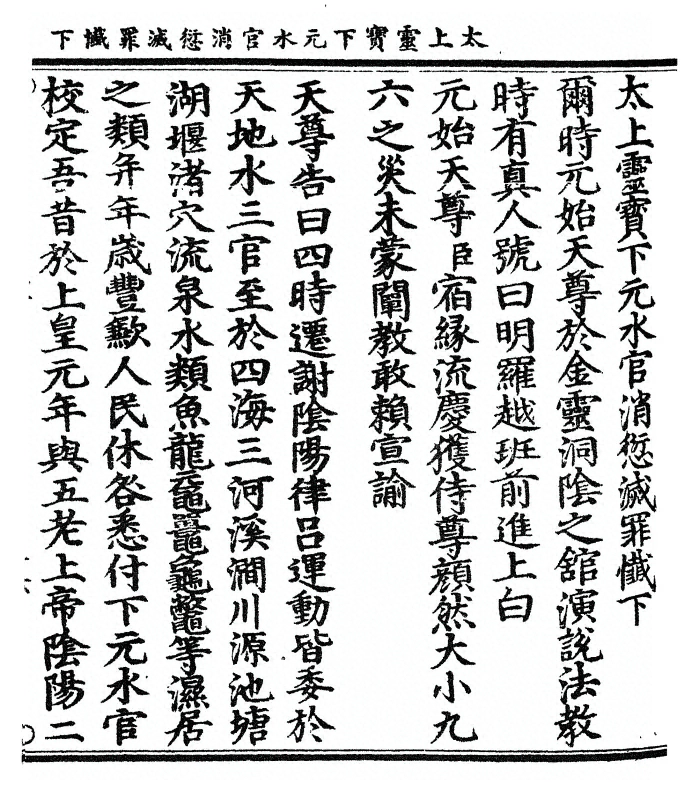 太上靈寶下元水官消愆滅罪懺下
太上靈寶下元水官消愆滅罪懺下
爾時元始天尊於金靈洞陰之舘演說法教
時有真人號曰明羅越班前進上白
元始天尊臣宿緣流慶獲侍尊顏然大小九
六之災未蒙闡教敢賴宣諭
天尊告曰四時遷謝陰陽律呂運動皆委於
天地水三官至於四海三河溪澗川源池塘
湖堰渚穴流泉水類魚龍黿鼉龜鼈等濕居
之類并年歲豐歉人民休咎悉付下元水官
校定吾昔於上皇元年與五老上帝陰陽二